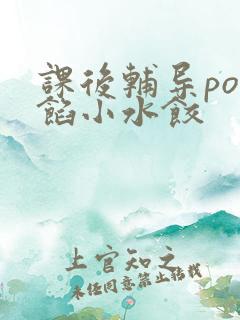 課後輔导po
餡小水餃
上官知之
未经同意禁止转载